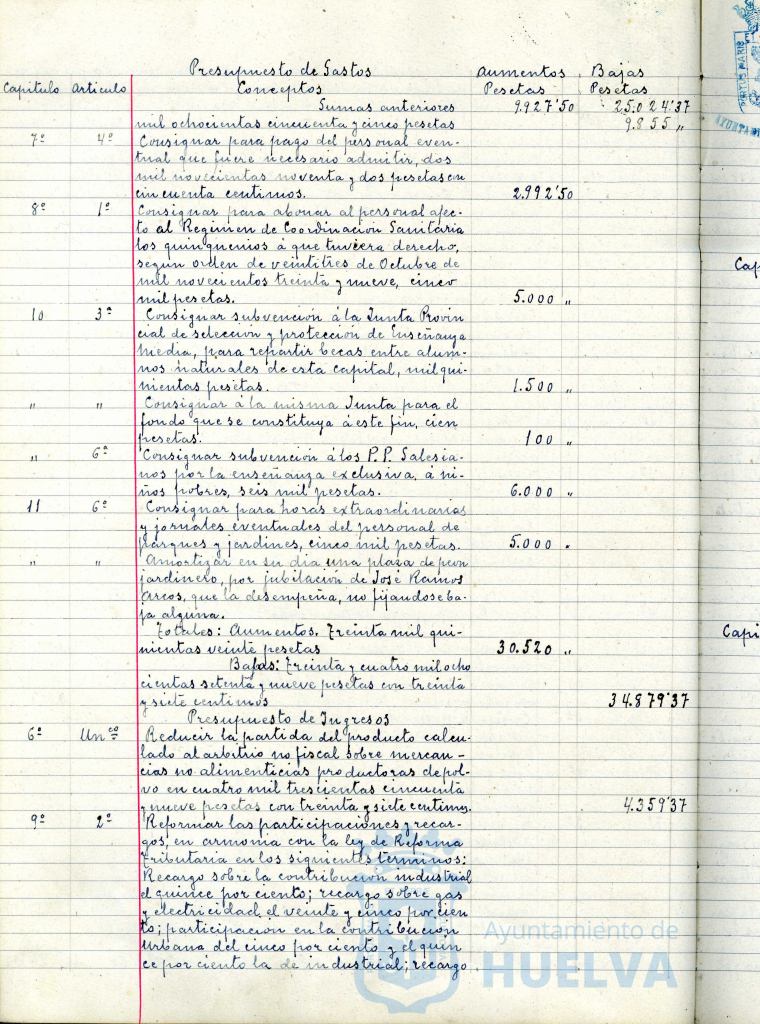 Presupuesto de Gastos Aumentos Bajas
Capítulo Artículo Conceptos Pesetas Pesetas
Sumas anteriores 9.927'50 25.024'37
mil ochocientas cincuenta y cinco pesetas 9.855 „
7º 4º Consignar para pago del personal even-
tual que fuere necesario admitir, dos
mil novecientas noventa y dos pesetas con
cincuenta centimos. 2.992'50
8º 1º Consignar para abonar al personal afec-
to al Regimen de Coordinación Sanitaria
los quinquenios á que tuviera derecho,
segun orden de veintitres de Octubre de
mil novecientos treinta y nueve, cinco
mil pesetas. 5.000 „
10 3º Consignar subvención á la Junta Provin
cial de selección y protección de Enseñanza
Media, para repartir becas entre alum-
nos naturales de esta capital, mil qui-
nientas pesetas. 1.500 „
„ „ Consignar á la misma Junta para el
fondo que se constituya á este fin, cien
pesetas. 100 „
„ 6º Consignar subvención á los P.P. Salesia-
nos por la enseñanza exclusiva, á ni-
ños pobres, seis mil pesetas. 6.000 „
11 6º Consignar para horas extraordinarias
y jornales eventuales del personal de
parques y jardines, cinco mil pesetas. 5.000 „
„ „ Amortizar en su dia una plaza de peon
jardinero, por jubilación de José Ramos
Arcos, que la desempeña, no fijandose ba-
ja alguna.
Totales: Aumentos. Treinta mil qui-
nientas veinte pesetas 30.520 „
Bajas: Treinta y cuatro mil ocho
cientas setenta y nueve pesetas con treinta
y siete centimos 34.879'37
Presupuesto de Ingresos
6º Unco Reducir la partida del producto calcu-
lado al arbitrio no fiscal sobre mercan-
cias no alimenticias productoras de pol-
vo en cuatro mil trescientas cincuenta
y nueve pesetas con treinta y siete centimos. 4.359'37
9º 2º Reformar las participaciones y recar-
gos, en armonia con la ley de Reforma
Tributaria en los siguientes terminos:
Recargo sobre la contribucion industrial
el quince por ciento; recargo sobre gas
y electricidad, el veinte y cinco por cien
to; participacion en la contribución
Urbana del cinco por ciento y el quin
ce por ciento la de industrial; recargo
Ayuntamiento de
HUELVA
Cap
Capi